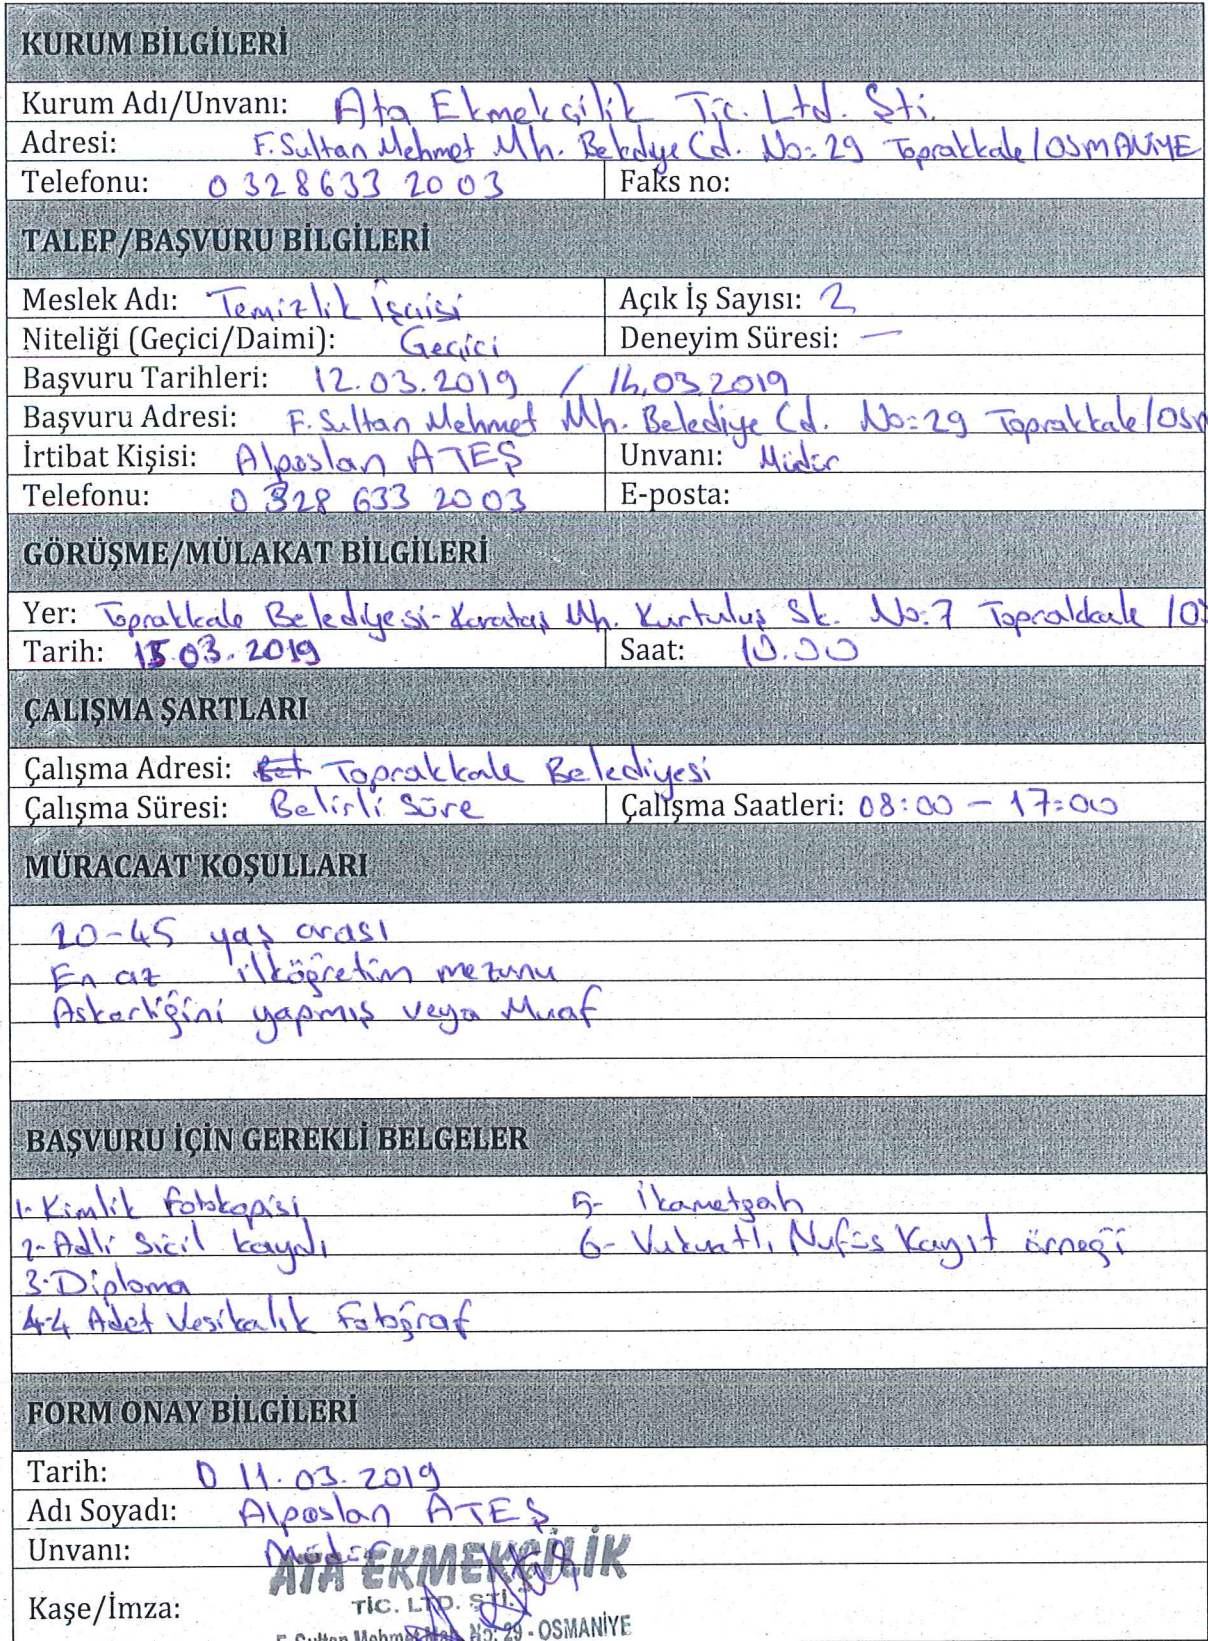 KURUM BİLGİLERİ
Kurum Adı/Unvanı: Ata Ekmekçilik Tic. Ltd. Şti.
Adresi: F. Sultan Mehmet Mh. Belediye Cd. No: 29 Toprakkale/OSMANİYE
Telefonu: 0 328 633 20 03 Faks no:
TALEP/BAŞVURU BİLGİLERİ
Meslek Adı: Temizlik İşçisi Açık İş Sayısı: 2
Niteliği (Geçici/Daimi): Geçici Deneyim Süresi: —
Başvuru Tarihleri: 12.03.2019 / 14.03.2019
Başvuru Adresi: F. Sultan Mehmet Mh. Belediye Cd. No: 29 Toprakkale/OSM
İrtibat Kişisi: Alpaslan ATEŞ Unvanı: Müdür
Telefonu: 0 328 633 20 03 E-posta:
GÖRÜŞME/MÜLAKAT BİLGİLERİ
Yer: Toprakkale Belediyesi-Karataş Mh. Kurtuluş Sk. No: 7 Toprakkale /OS
Tarih: 15.03.2019 Saat: 10.00
ÇALIŞMA ŞARTLARI
Çalışma Adresi: Toprakkale Belediyesi
Çalışma Süresi: Belirli Süre Çalışma Saatleri: 08:00 - 17:00
MÜRACAAT KOŞULLARI
20-45 yaş arası
En az ilköğretim mezunu
Askerliğini yapmış veya Muaf
BAŞVURU İÇİN GEREKLİ BELGELER
1- Kimlik Fotokopisi 5- İkametgah
2- Adli Sicil kaydı 6- Vukuatlı Nufüs Kayıt örneği
3- Diploma
4-4 Adet Vesikalık Fotoğraf
FORM ONAY BİLGİLERİ
Tarih: 11.03.2019
Adı Soyadı: Alpaslan ATEŞ
Unvanı: Müdür
ATA EKMEKÇİLİK
Kaşe/İmza: TİC. LTD. ŞTİ.
F. Sultan Mehmet Mah. No: 29 - OSMANİYE